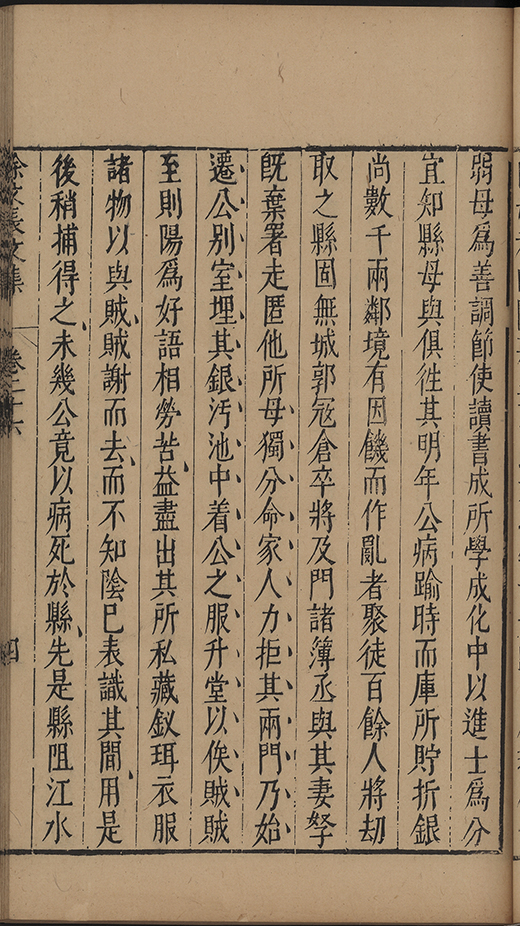 弱母爲善調節使讀書成所學成化中以進士爲分
宜知縣母與俱徃其明年公病踰時而庫所貯折銀
尚數千兩鄰境有因饑而作亂者聚徒百餘人將刼
取之縣固無城郭冦倉卒將及門諸簿丞與其妻孥
旣棄署走匿他所母獨分命家人力拒其兩門乃始
遷公别室埋其銀汚池中着公之服升堂以俟賊賊
至則陽爲好語相勞苦益盡出其所私藏釵珥衣服
諸物以與賊賊謝而去而不知陰巳表識其間用是
後稍捕得之未幾公竟以病死於縣先是縣阻江水
徐文長文集 卷二十六 四